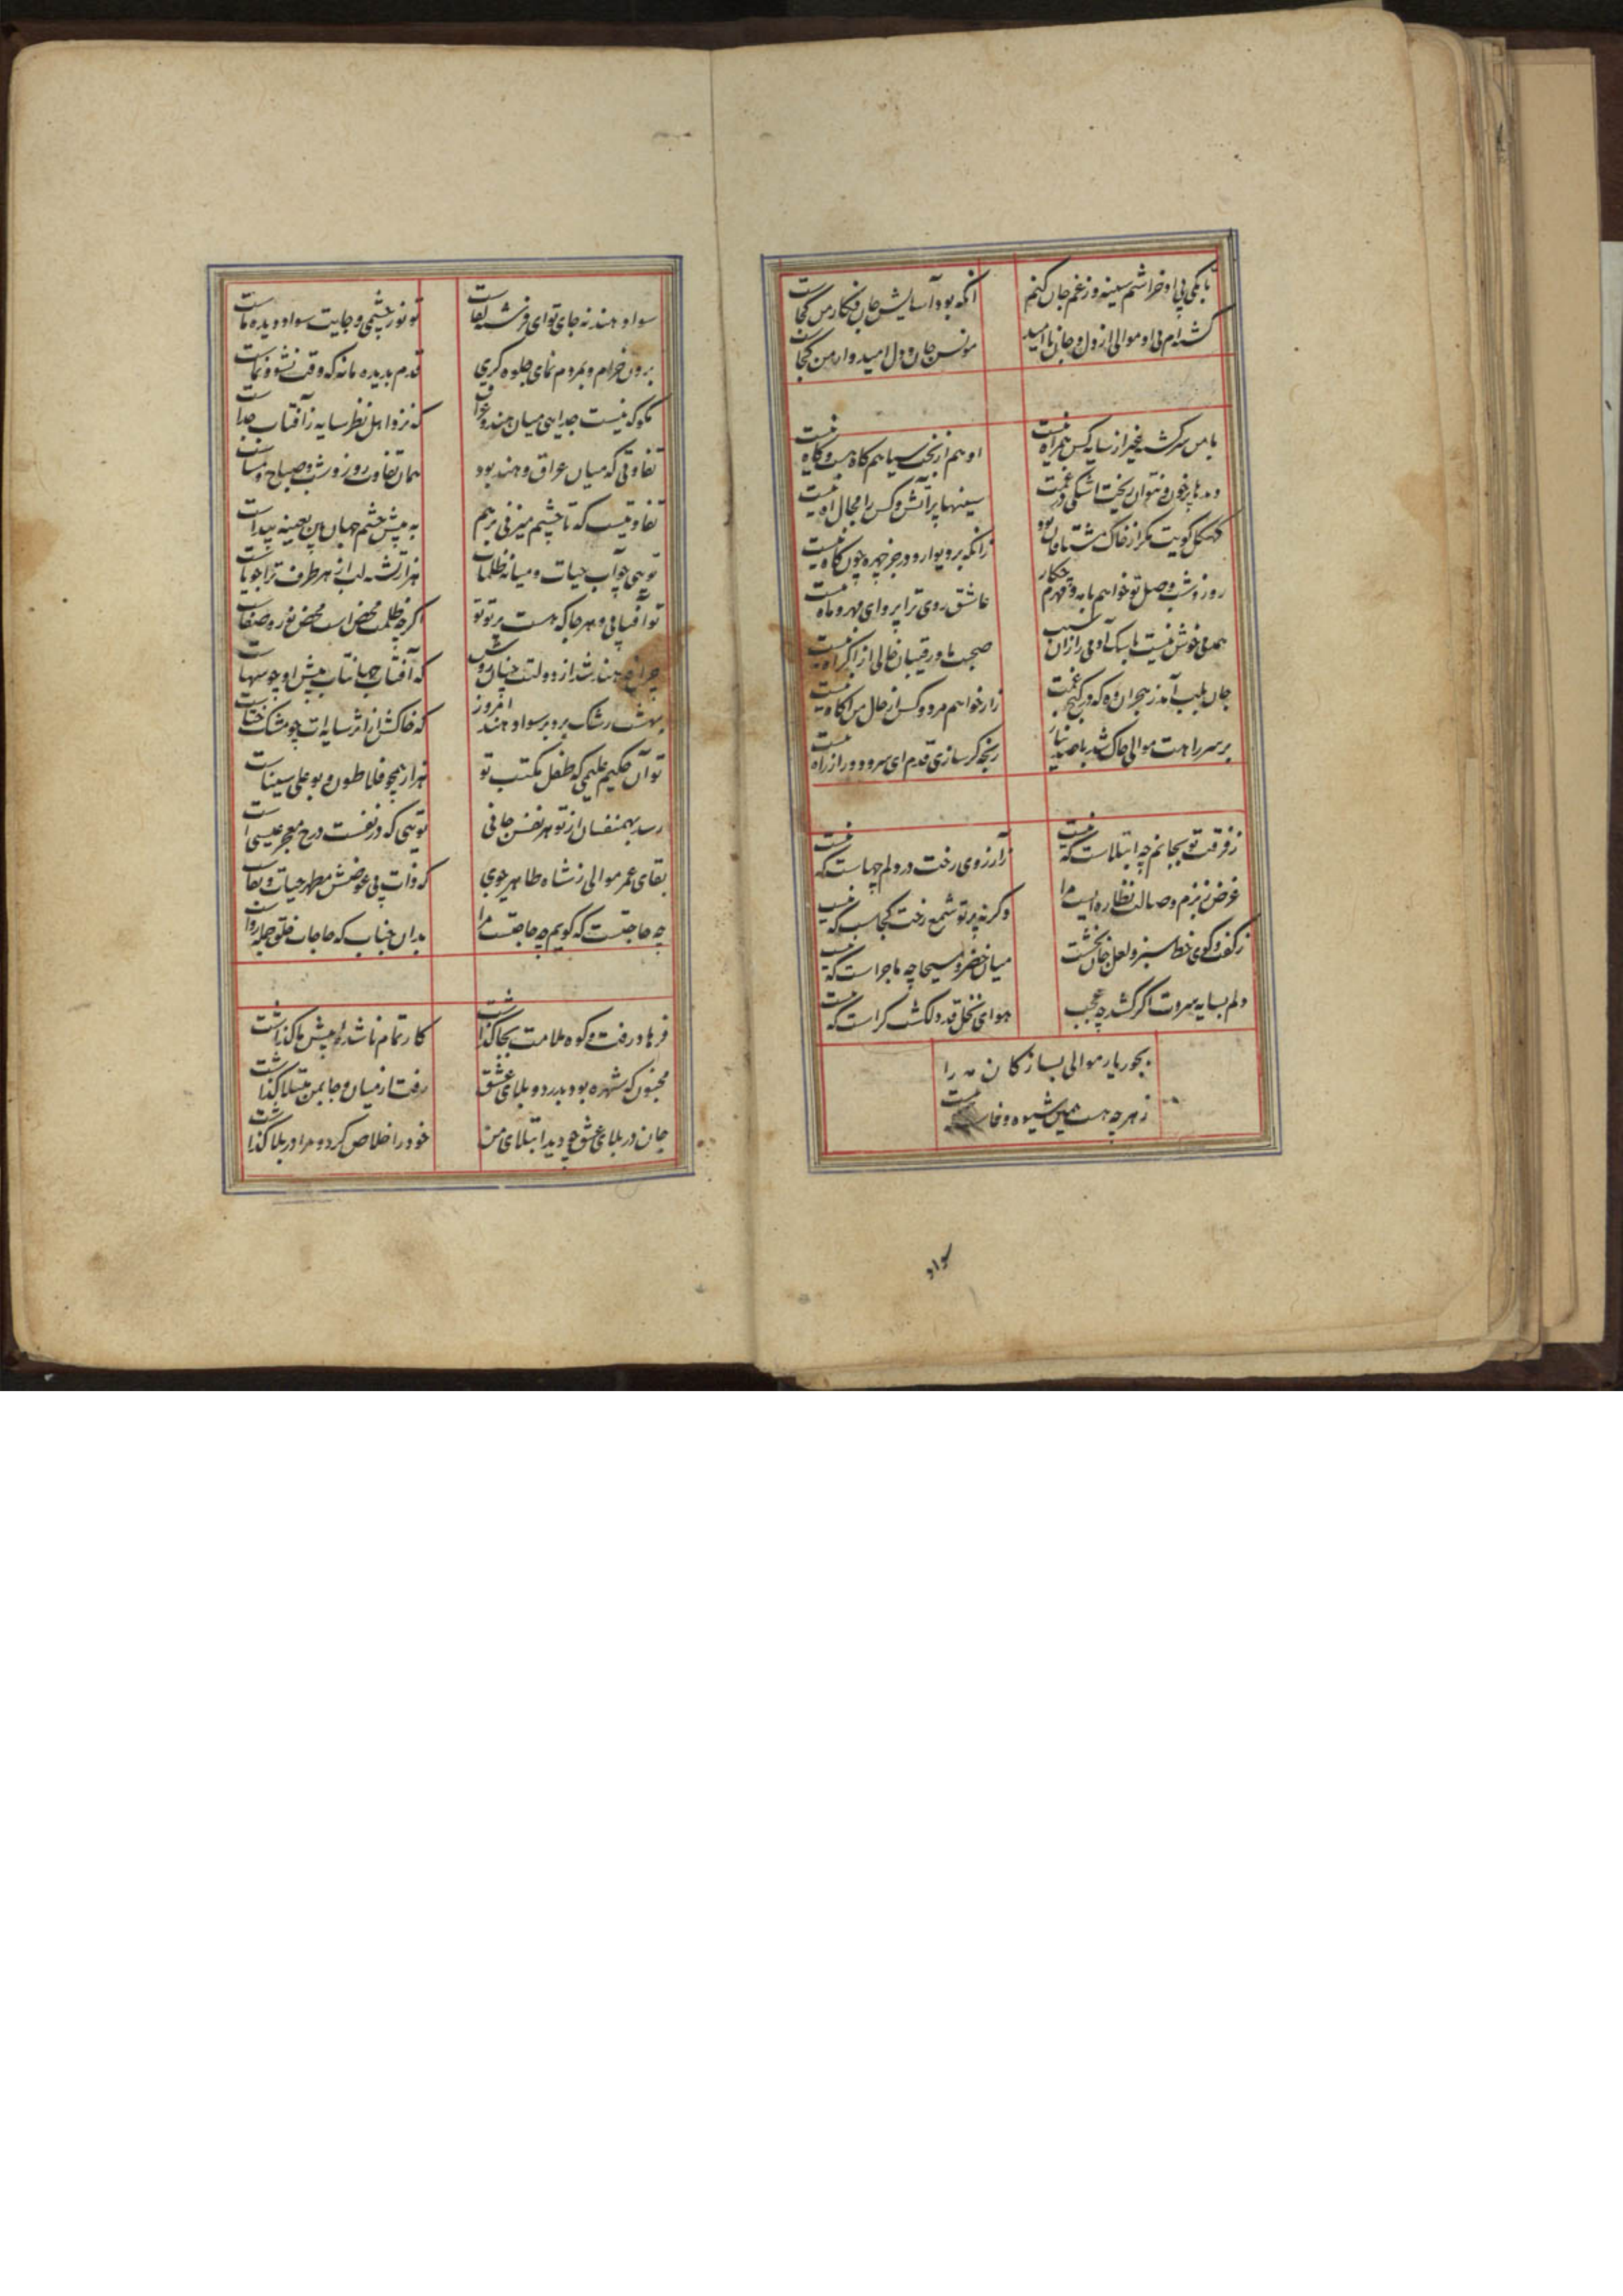 تا بکی بی او خراشم سینه و ز غم جان کنم
انکه بود آسایش جان فکار من کجاست
کشته ام بی او موالی از دل و جان نا امید
مونس جان و دل امیدوار من کجاست
با من سرکشته غیر از سایه کس همراه نیست
او هم از بخت سیاهم کاه هست و کاه نیست
دیدها پر خون و نتوان ریخت اشکی در غمت
سینها پر آتش و کس را مجال آه نیست
کهکل کویت مکر از خاک مشتاقان بود
زانکه بر دیوار و در جز چهره چون کاه نیست
روز و شب وصل تو خواهم با مه و مهرم چکار
عاشق روی ترا پروای مهر و ماه نیست
همدمی خوش نیست با سک آدمی را زان سبب
صحبت ما و رقیبان خالی از اکراه نیست
جان بلب آمد ز هجران وه که در کنج غمت
زار خواهم مرد و کس از حال من آکاه نیست
بر سر راهت موالی خاک شد با صد نیاز
رنجه کر سازی قدم ای سرو دور از راه نیست
ز فرقت تو بجانم چه ابتلاست که نیست
ز آرزوی رخت در دلم چهاست که نیست
غرض ز بزم وصالت نظاره ایست مرا
وکرنه پرتو شمع رخت کجاست که نیست
ز کفت و کوی خط سبز و لعل جان بخشت
میان خضر و مسیحا چه ماجراست که نیست
دلم بسایه سروت اکر کشد چه عجب
هوای نخل قد دلکشت کراست که نیست
بجور یار موالی بساز کان مه را
ز هر چه هست همین شیوه وفاست
سواد
سواد هند نه جای تو ای فرشته لقاست
تو نور چشمی و جایت سواد دیده ماست
برون خرام و بمردم نمای جلوه کری
قدم بدیده ما نه که وقت نشو و نماست
مکو که نیست جدایی میان هند و عراق
که نزد اهل نظر سایه ز آفتاب جداست
تفاوتی که میان عراق و هند بود
همان تفاوت روز و شب و صباح و مساست
تفاوتیست که تا چشم میزنی بر هم
به پیش چشم جهان بین بعینه پیداست
تویی چو آب حیات و میانه ظلمات
هزار تشنه لب از هر طرف ترا جویاست
تو آفتابی و هر جا که هست پرتو تو
اکر چه ظلمت محض است محض نور و صفاست
چراغ هند شد از دولتت چنان روشن
که آفتاب جهانتاب پیش او چو سهاست
بهشت رشک برد بر سواد هند امروز
که خاکش از اثر سایه ات چو مشک ختاست
تو آن حکیم علیمی که طفل مکتب تو
هزار همچو فلاطون و بو علی سیناست
رسد بهمنفسان از تو هر نفس جانی
تویی که در نفست درج معجز عیسی است
بقای عمر موالی ز شاه طاهر جوی
که ذات بی عوضش مظهر حیات و بقاست
چه حاجتست که کویم چه حاجتست مرا
بدان جناب که حاجات خلق جمله رواست
فرهاد رفت و کوه ملامت بجا کذاشت
کار تمام ناشده را پیش ما کذاشت
مجنون که شهره بود بدرد و بلای عشق
رفت از میان و جا بمن مبتلا کذاشت
جان در بلای عشق چو دید ابتلای من
خود را خلاص کرد و مرا در بلا کذاشت